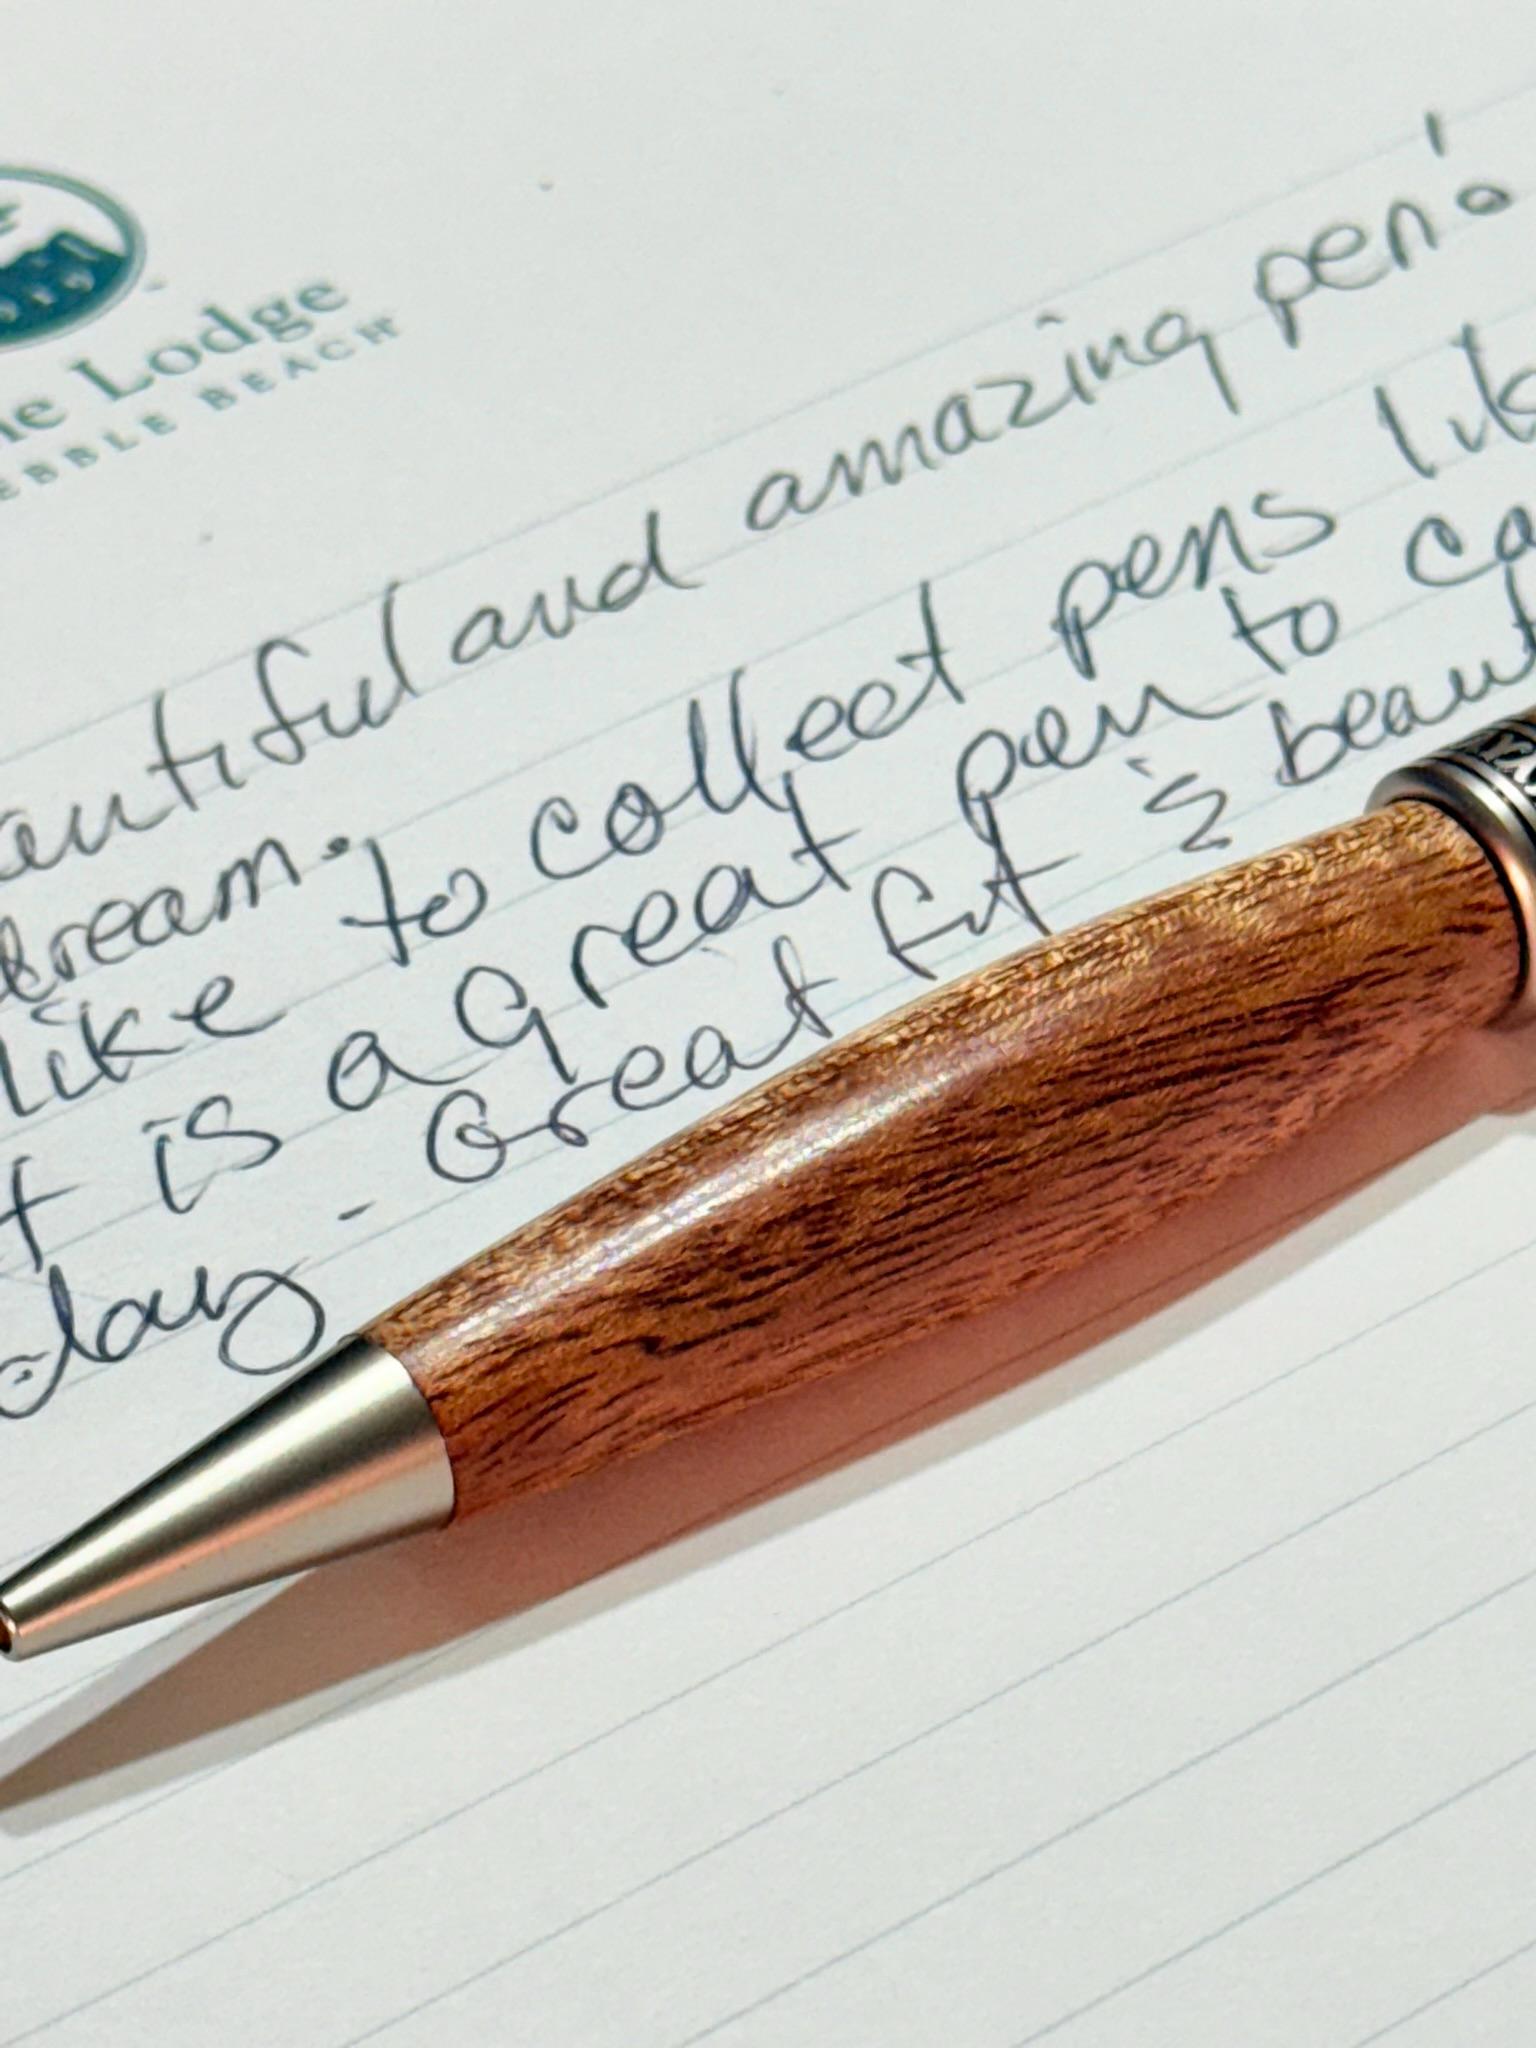 he Lodge
EBBLE BEACH
autiful and amazing pen!
dream.
like to collect pens lik
t is a great pen to ca
day - Great fit is beaut